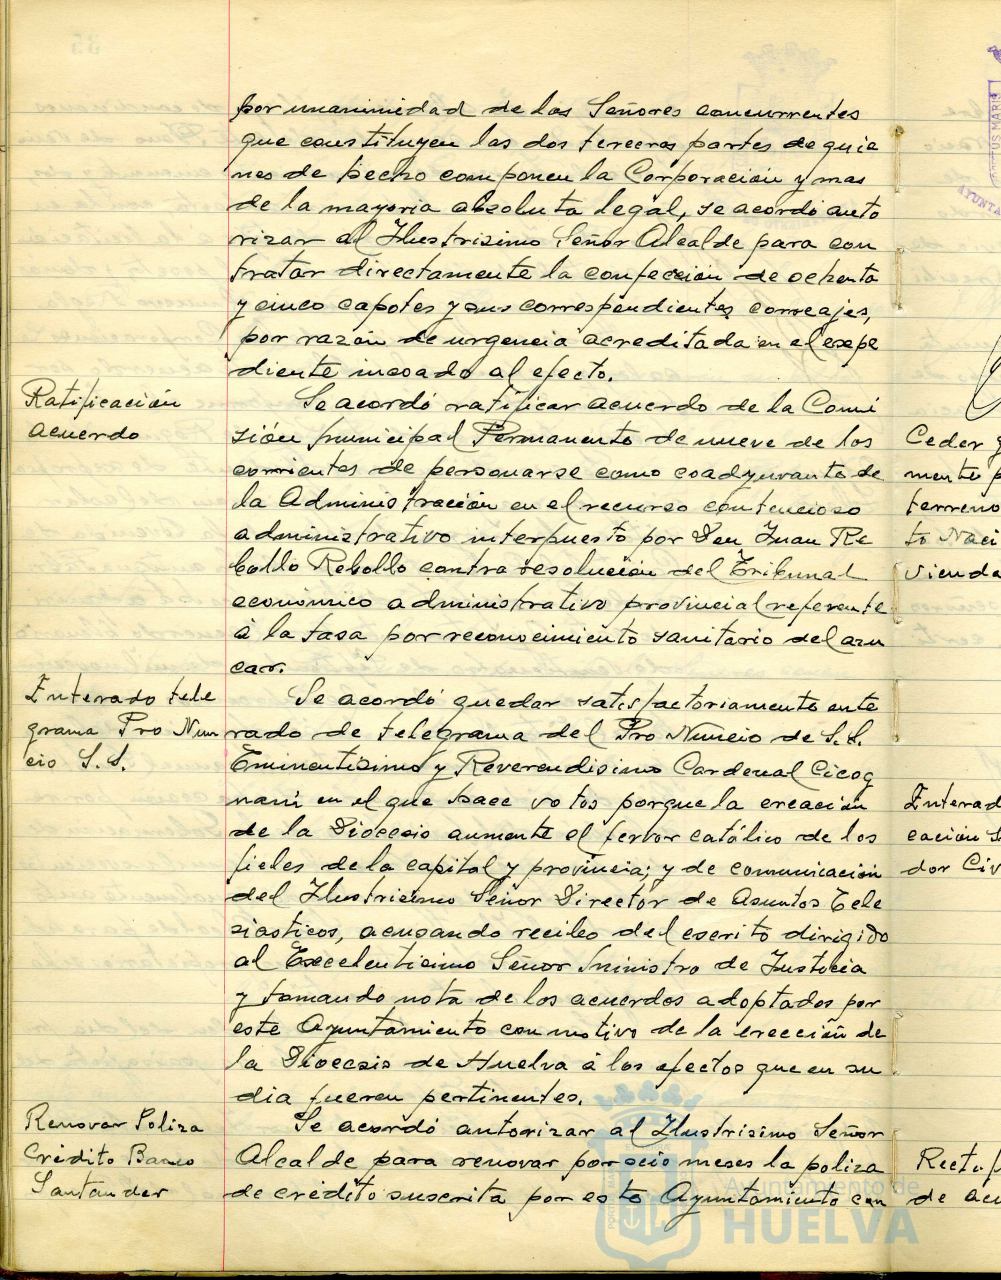 por unanimidad de los Señores concurrentes
que constituyen las dos terceras partes de quie
nes de hecho componen la Corporación y mas
de la mayoria absoluta legal, se acordó auto
rizar al Ilustrisimo Señor Alcalde para con
tratar directamente la confección de ochenta
y cinco capotes y sus correspondientes correajes,
por razón de urgencia acreditada en el expe
diente incoado al efecto.
Ratificación
acuerdo
Se acordó ratificar acuerdo de la Comi
sión municipal Permanente de nueve de los
corrientes de personarse como coadyuvante de
la Administración en el recurso contencioso
administrativo interpuesto por Don Juan Re
bollo Rebollo contra resolución del Tribunal
económico administrativo provincial referente
á la tasa por reconocimiento sanitario del azu
car.
Enterado tele
grama Pro Nun
cio S.S.
Se acordó quedar satisfactoriamente ente
rado de telegrama del Pro Nuncio de S.S.
Eminentisimo y Reverendisimo Cardenal Cicog
nani en el que hace votos porque la creación
de la Diocesis aumente el fervor católico de los
fieles de la capital y provincia; y de comunicación
del Ilustrisimo Señor Director de Asuntos Ecle
siasticos, acusando recibo del escrito dirigido
al Excelentisimo Señor Ministro de Justicia
y tomando nota de los acuerdos adoptados por
este Ayuntamiento con motivo de la erección de
la Diocesis de Huelva á los efectos que en su
dia fueren pertinentes.
Renovar Poliza
Crédito Banco
Santander
Se acordó autorizar al Ilustrisimo Señor
Alcalde para renovar por seis meses la poliza
de crédito suscrita por este Ayuntamiento con
Ceder
mente
terreno
to Naci
vienda
Enterad
cación
dor Civ
Rectif
de acu
Ayuntamiento de
HUELVA